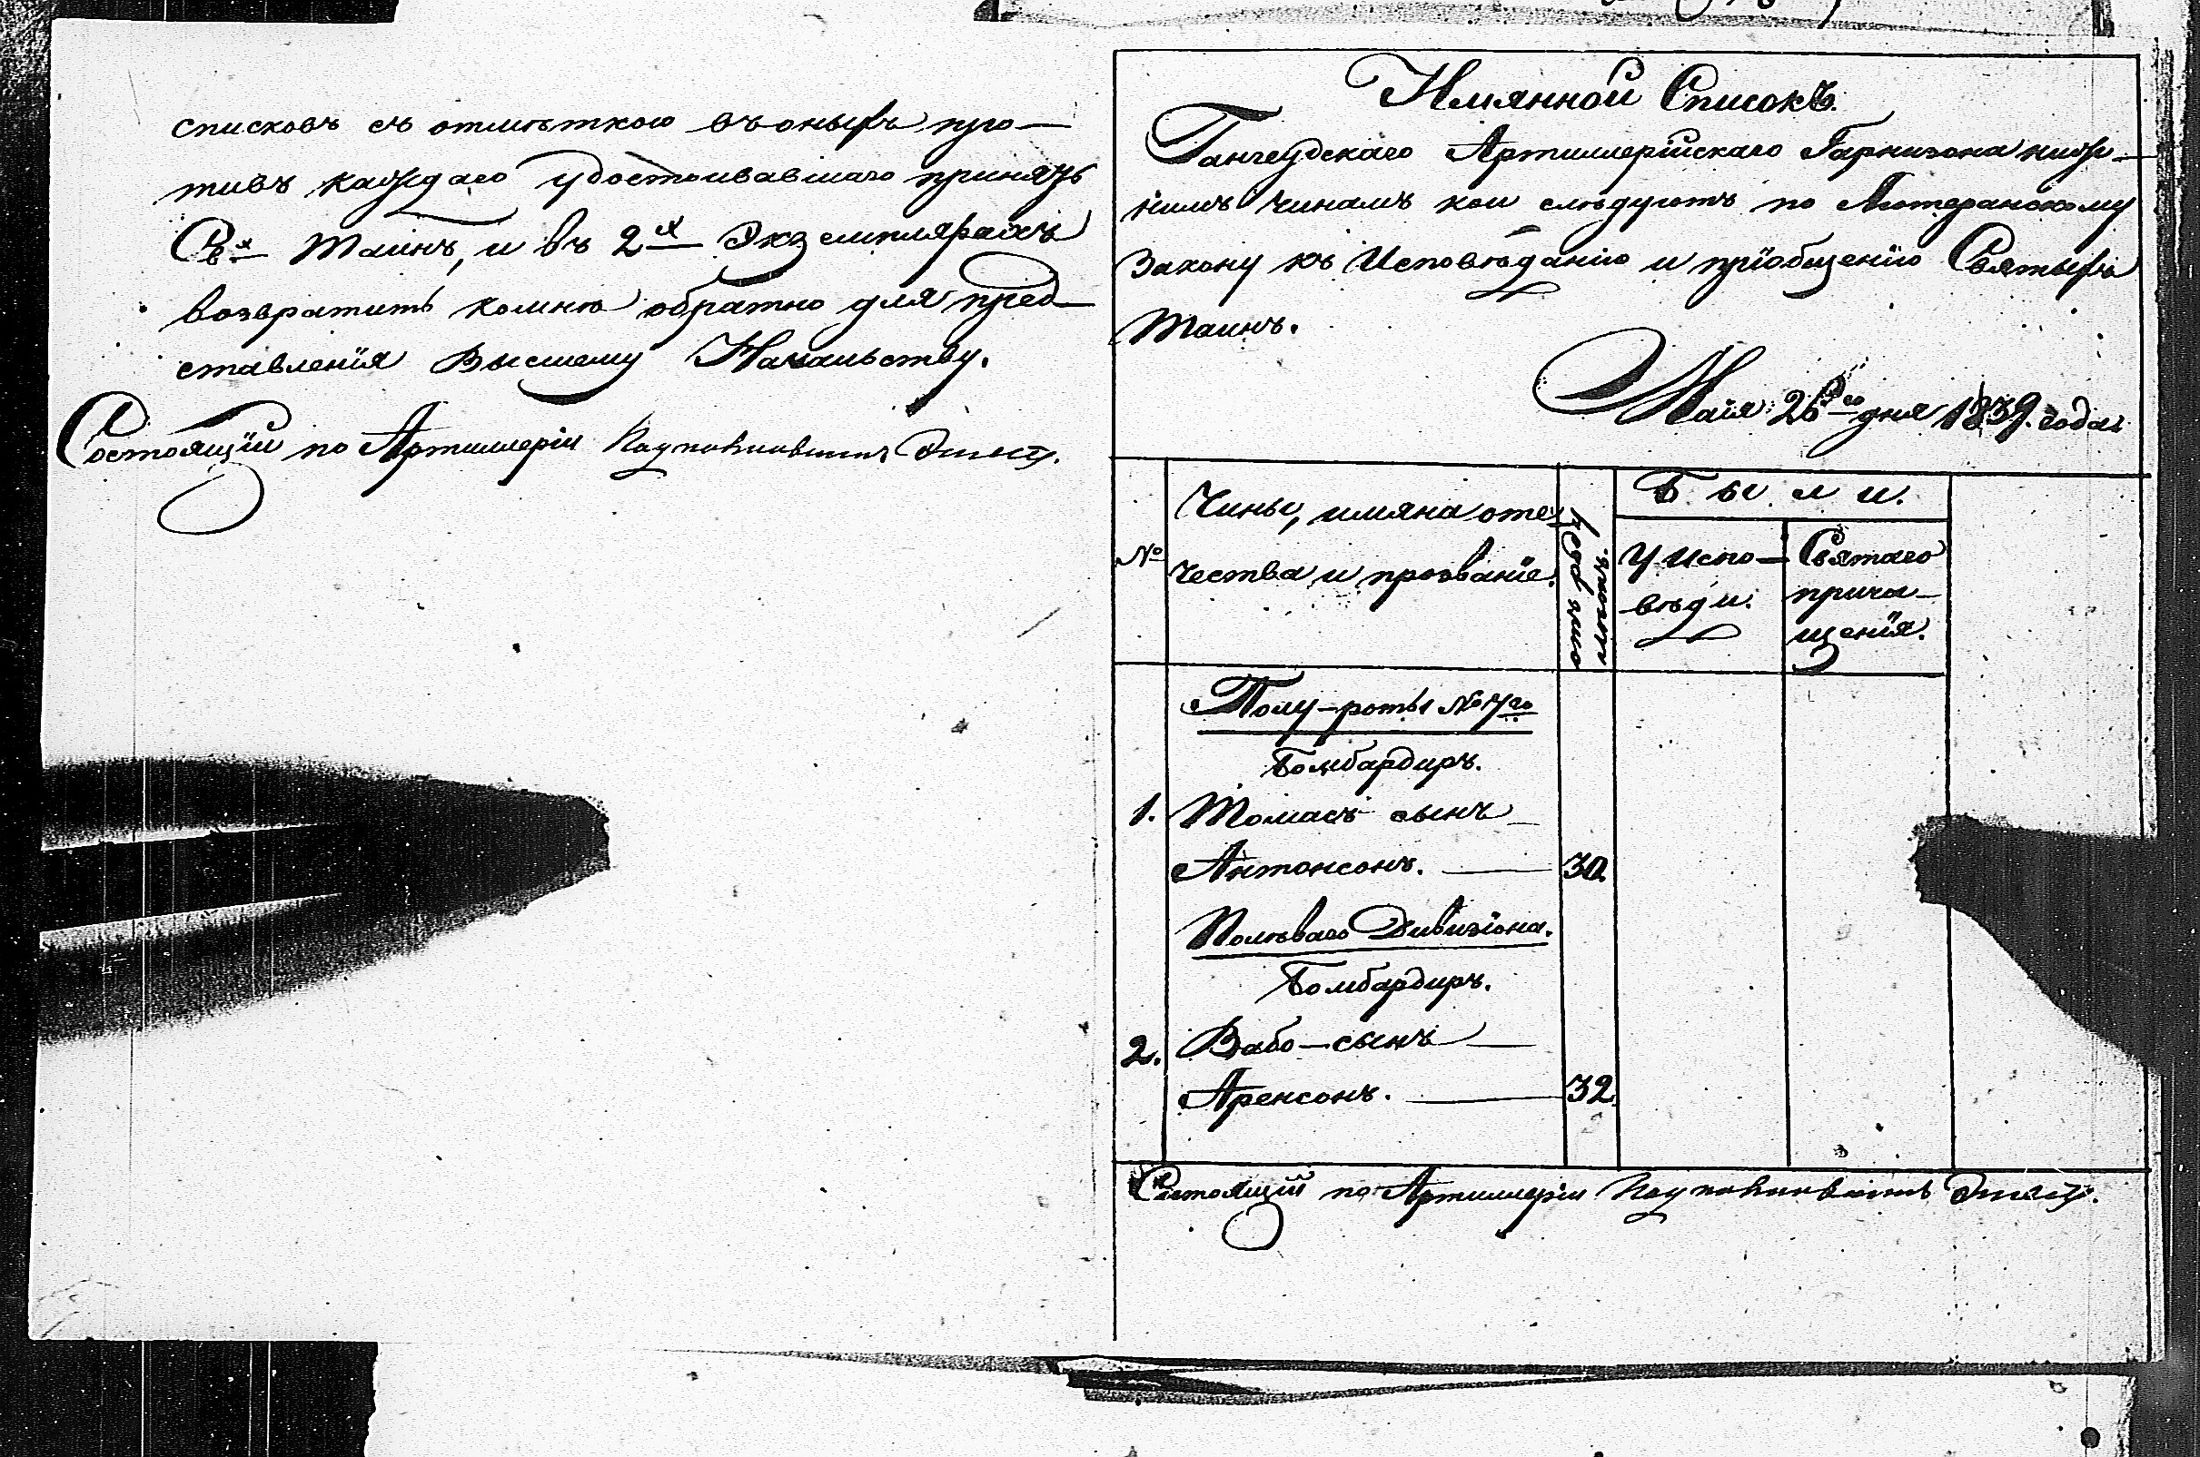 списковъ съ отмѣткою въ оныхъ про—
тивъ каждаго удостоивавшаго принять
Св.х Таинъ, и въ 2х Экземплярахъ
возвратить комнѣ обратно для пред—
ставленія Высшему Начальству.
Состоящій по Артиллеріи
Имянной Списокъ.
Гангеудскаго Артиллерійскаго Гарнизона ниж—
нимъ чинамъ кои слѣдуютъ по Лютеранскому
Закону къ Исповѣданію и пріобщенію Святыхъ
Таинъ.
Маія 26го дня 1839. года
№
Чины, имяна оте
чества и прозваніе.
Были.
У Испо—
вѣди.
Святаго
прича—
щенія.
Полу-роты №
Бомбардиръ.
1. Томасъ сынъ —
Антонсонъ. — 30.
Полѣваго Дивизіона.
Бомбардиръ.
2. Вабо—сынъ —
Аренсонъ. — 32.
Состоящій по Артиллеріи